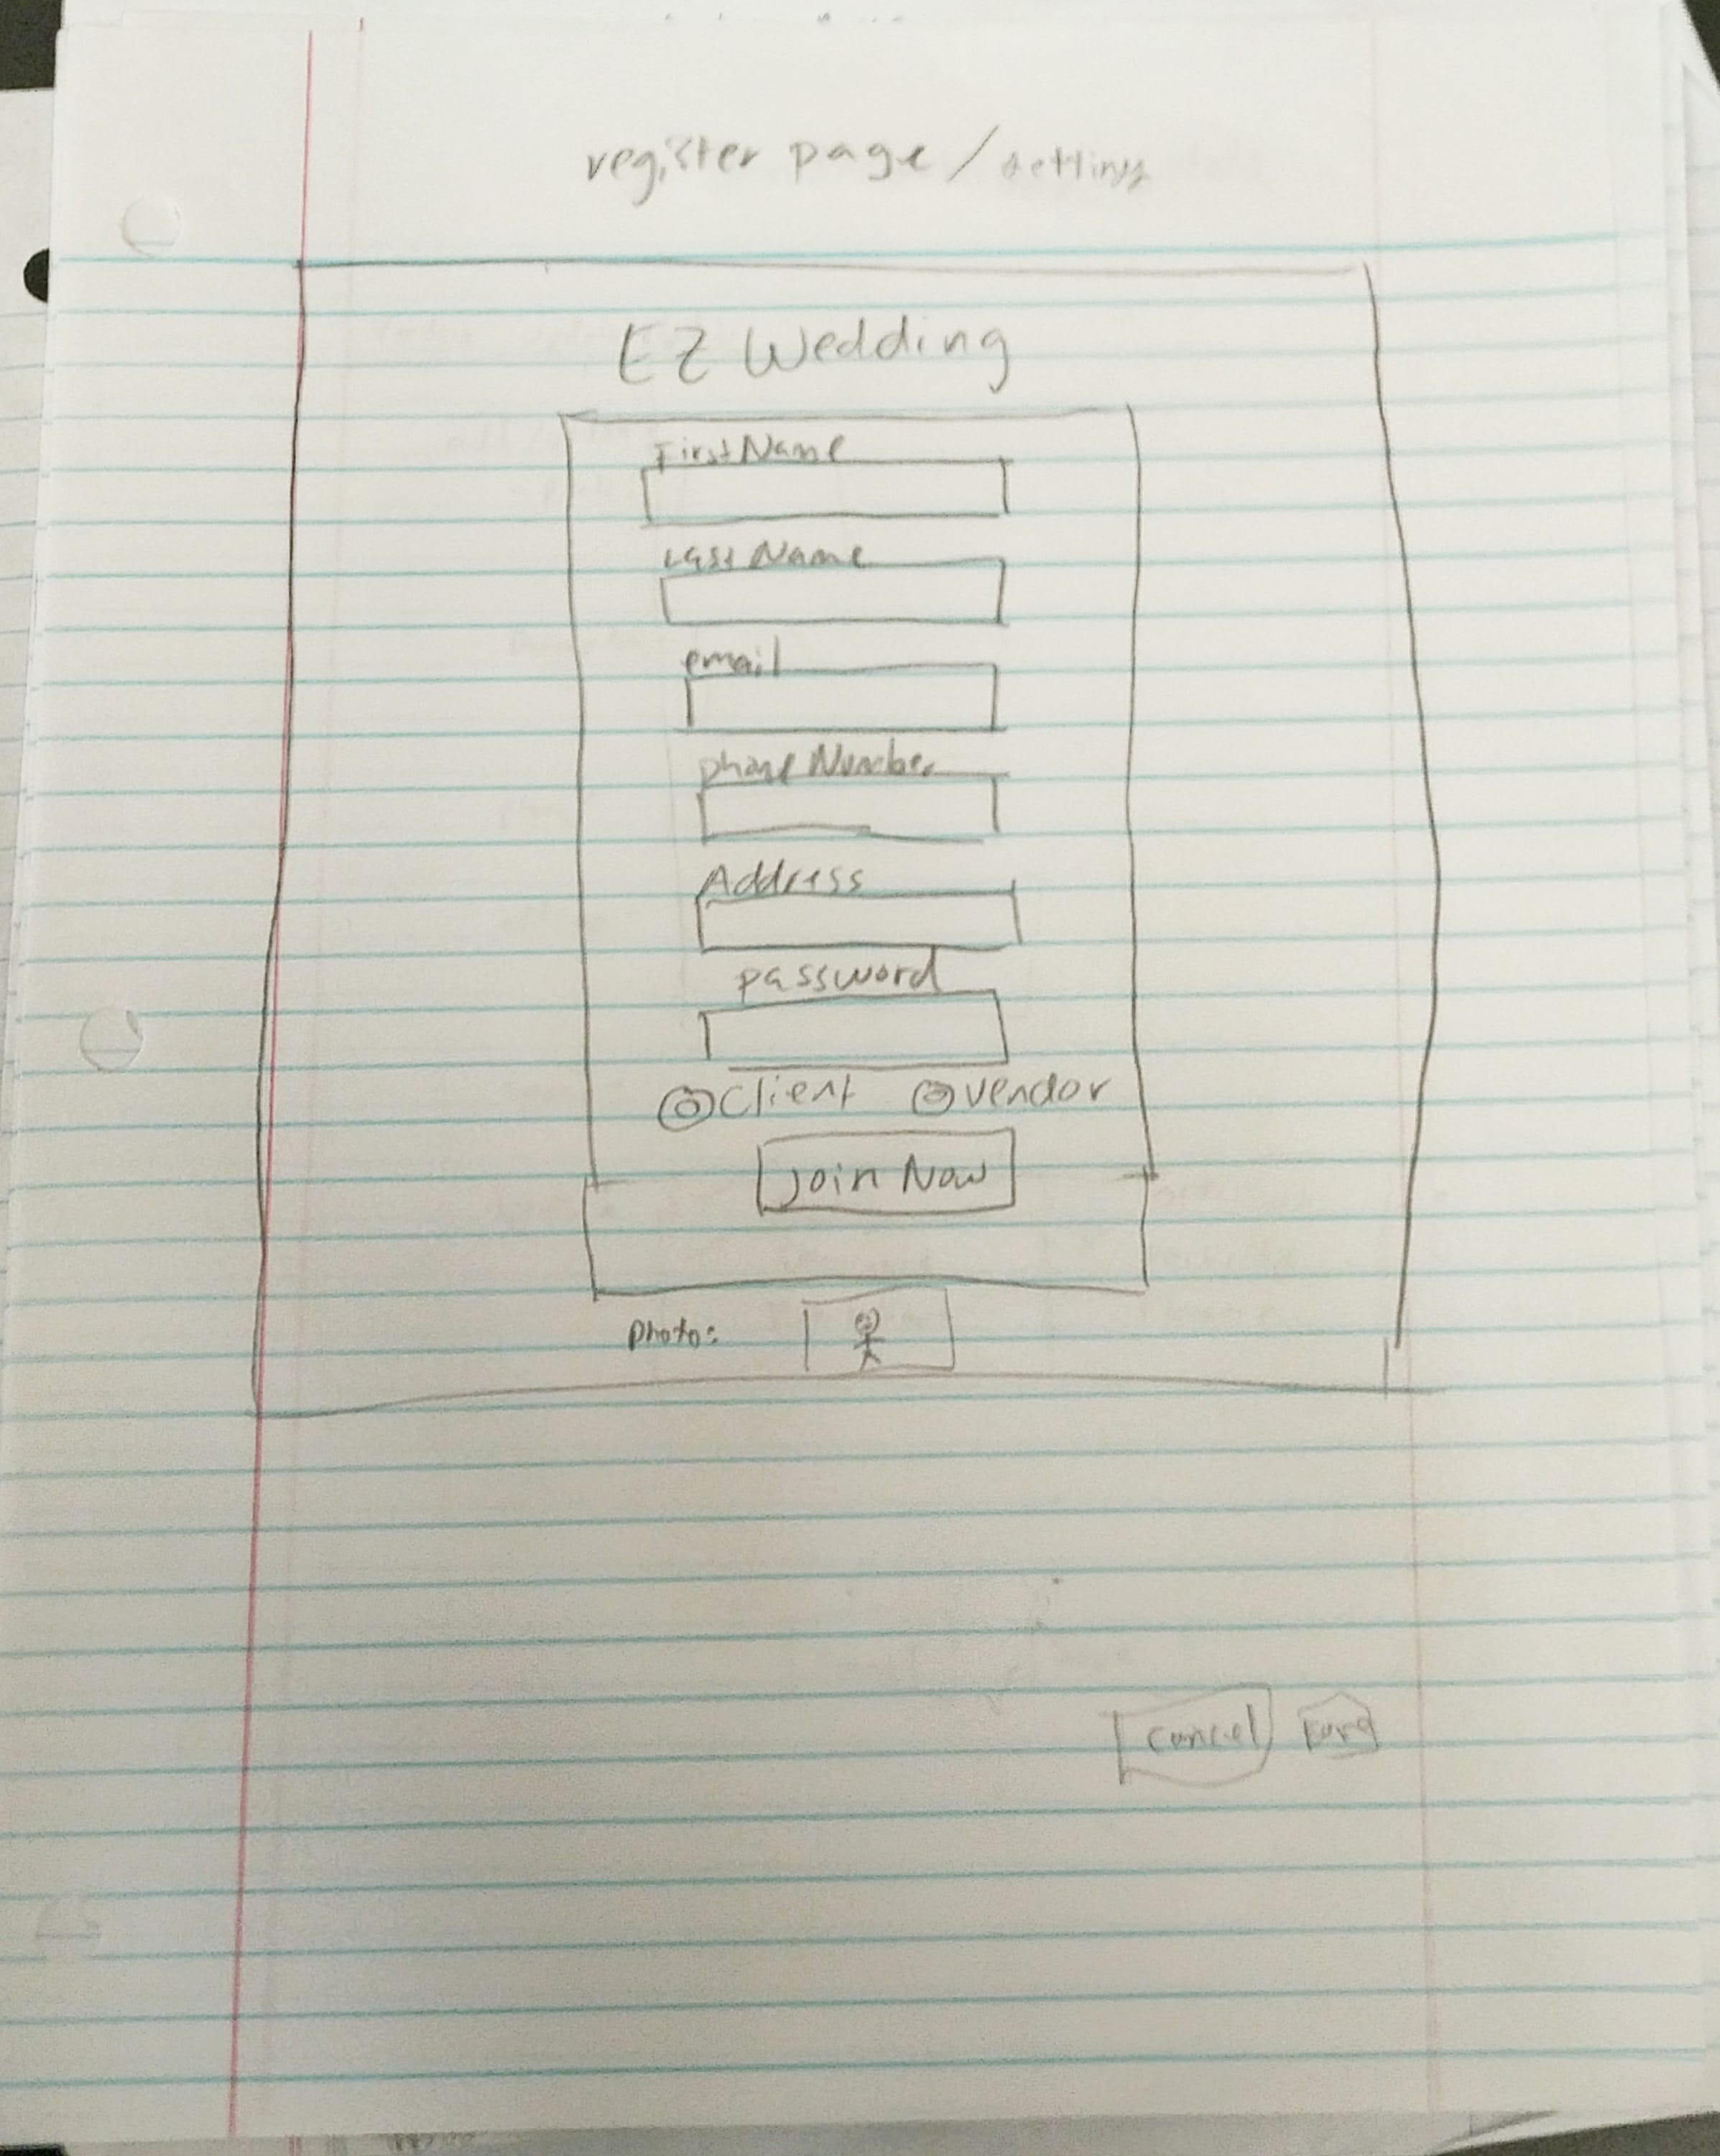 register page / settings
EZ Wedding
FirstName
Last Name
email
phone Number
Address
password
Client vendor
Join Now
photo:
cancel